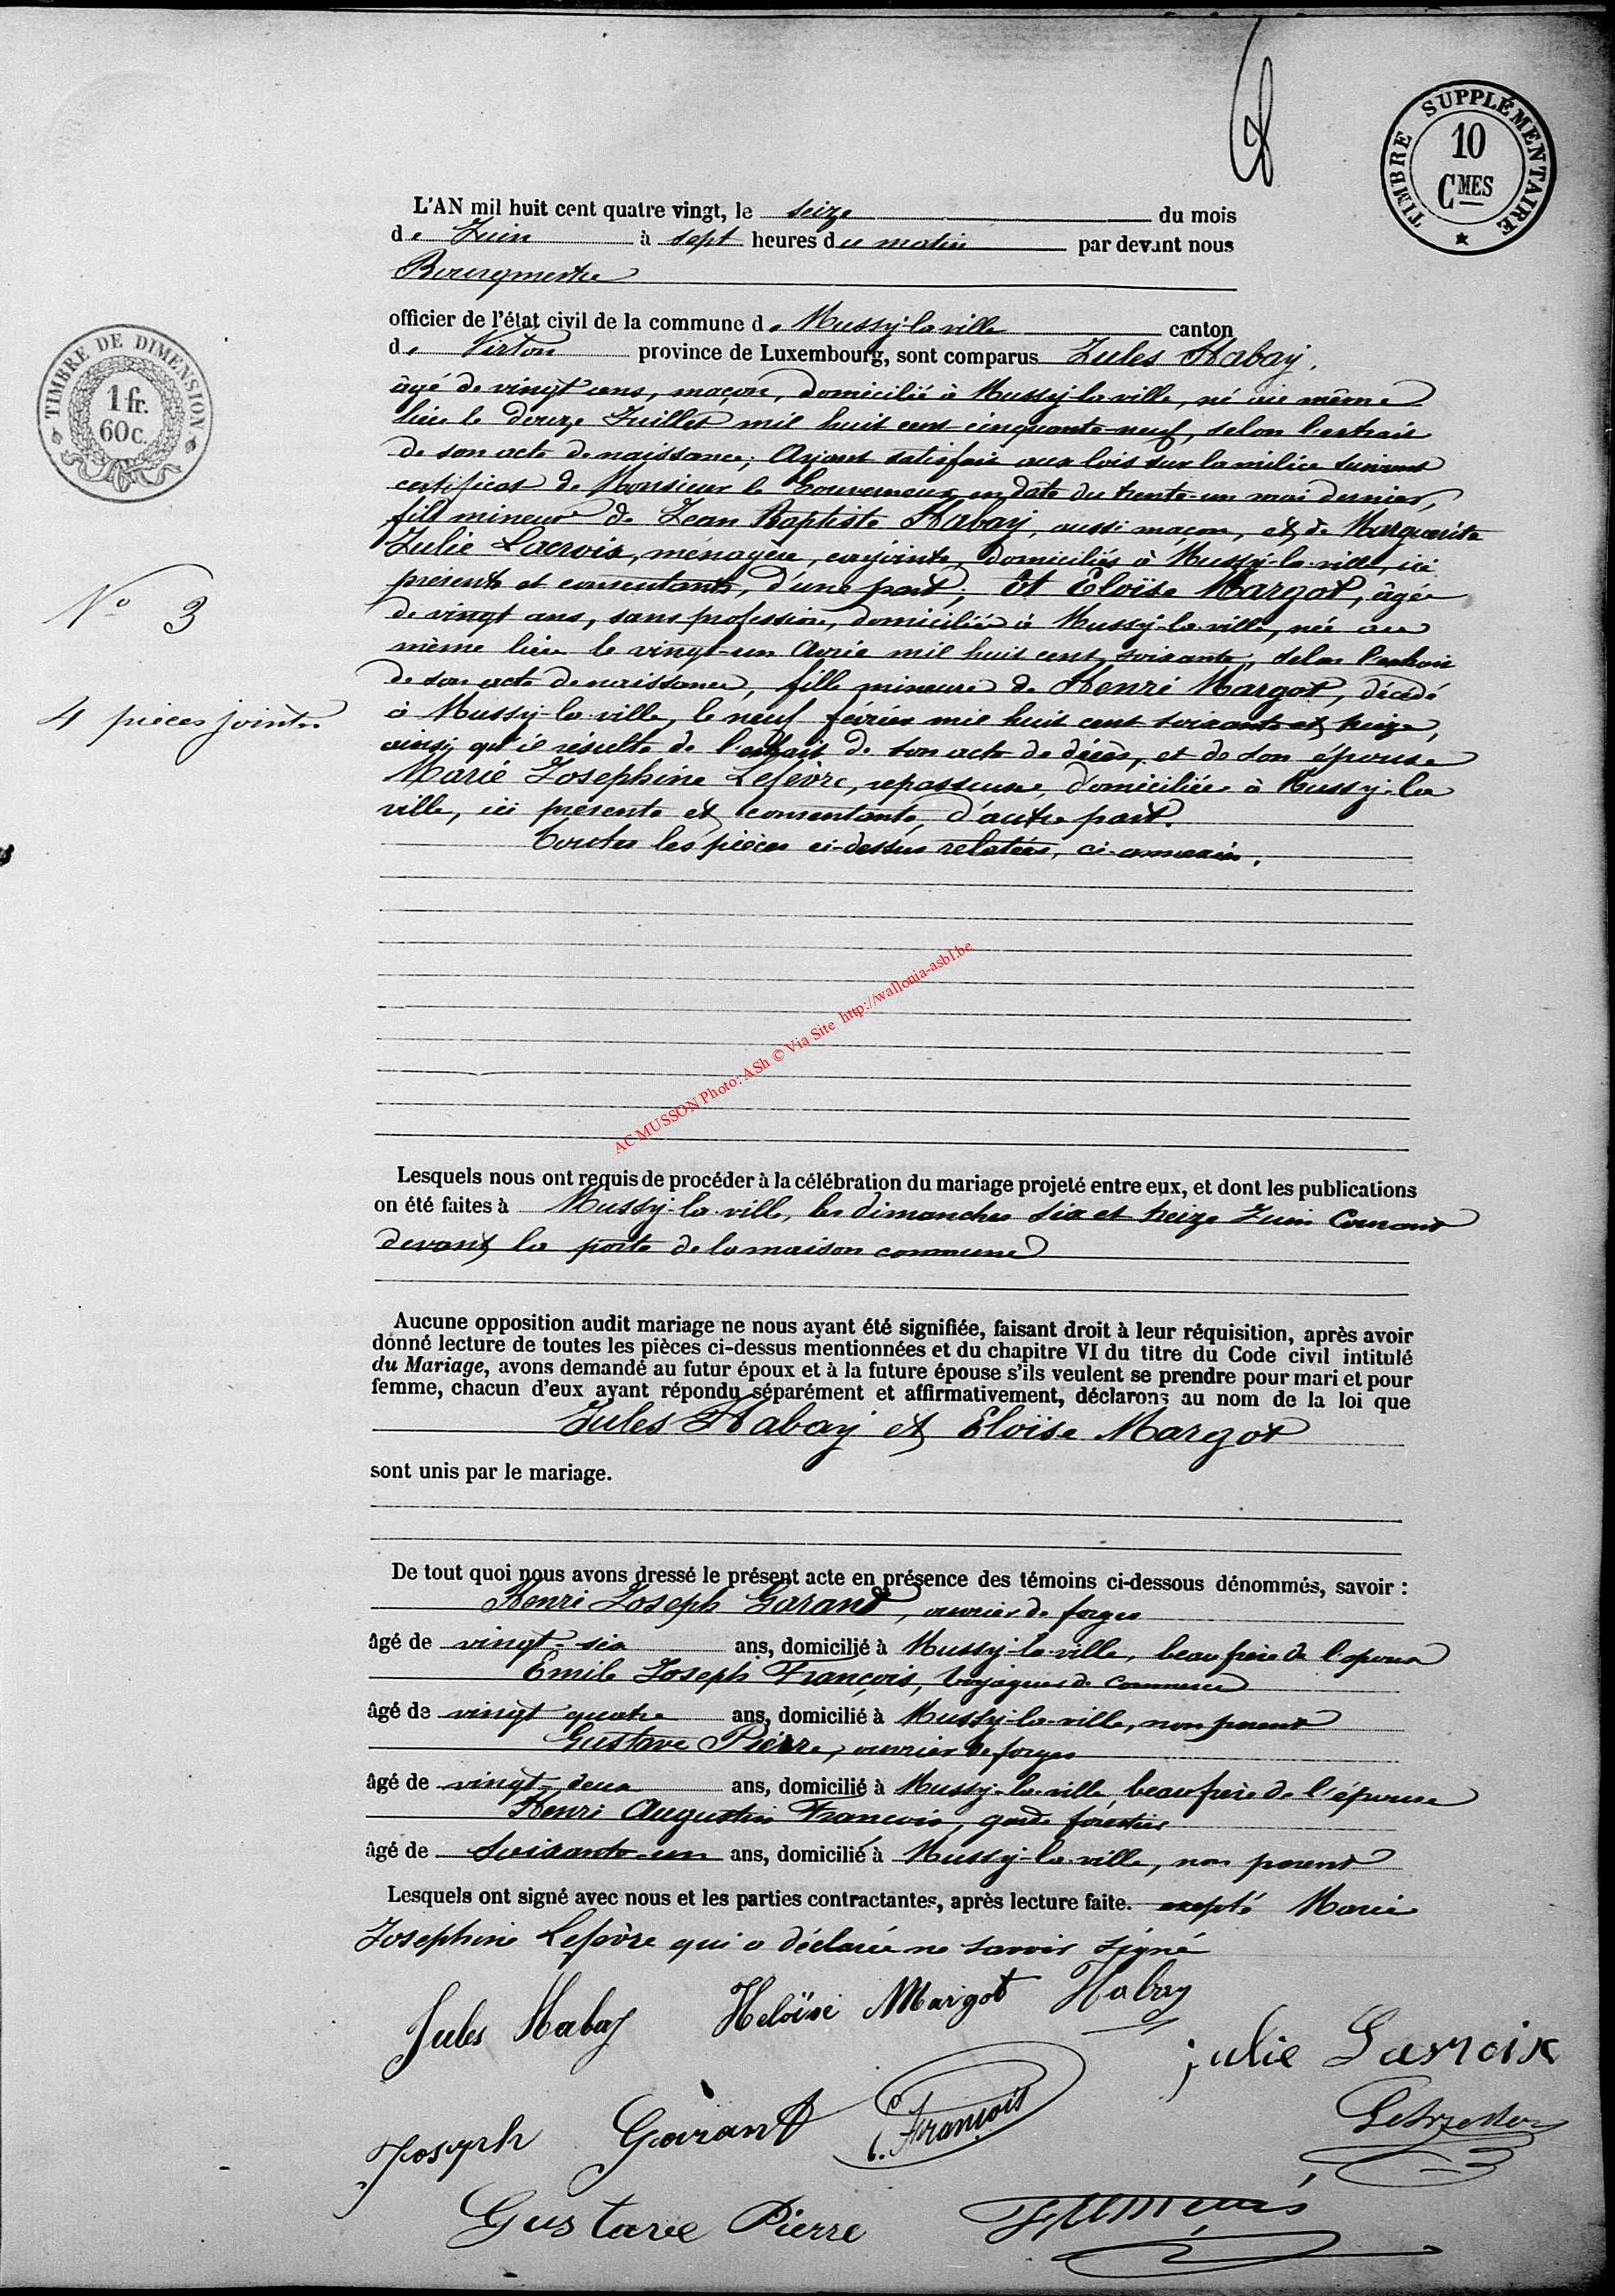 TIMBRE SUPPLÉMENTAIRE
10
CMES
L'AN mil huit cent quatre vingt, le seize du mois
de Juin à sept heures du matin par devant nous
Bourgmestre
officier de l'état civil de la commune de Mussy-la-ville canton
de Virton province de Luxembourg, sont comparus Jules Habay,
TIMBRE DE DIMENSION
1 fr.
60c.
âgé de vingt ans, maçon, domicilié à Mussy-la-ville, né au même
lieu le douze Juillet mil huit cent cinquante-neuf, selon l'extrait
de son acte de naissance; Ayant satisfait aux lois sur la milice suivant
certificat de Monsieur le Gouverneur en date du trente-un mai dernier,
fils mineur de Jean Baptiste Habay, aussi maçon, et de Marguerite
Julie Lacroix, ménagère, conjoints, domiciliés à Mussy-la-ville, ici
présents et consentants, d'une part; Et Eloïse Margot, âgée
N° 3
de vingt ans, sans profession, domiciliée à Mussy-la-ville, née au
même lieu le vingt-un Avril mil huit cent soixante, selon l'extrait
de son acte de naissance, fille mineure de Henri Margot, décédé
4 pièces jointes
à Mussy-la-ville, le neuf février mil huit cent soixante et treize,
ainsi qu'il résulte de l'extrait de son acte de décès, et de son épouse
Marie Josephine Lefèvre, repasseuse, domiciliée à Mussy-la
ville, ici présente et consentante, d'autre part.
Toutes les pièces ci-dessus relatées, ci-annexées.
AC MUSSON Photo: ASh © Via Site http://wallonia-asbl.be
Lesquels nous ont requis de procéder à la célébration du mariage projeté entre eux, et dont les publications
on été faites à Mussy-la-ville, les dimanches six et treize Juin Courant
devant la porte de la maison commune
Aucune opposition audit mariage ne nous ayant été signifiée, faisant droit à leur réquisition, après avoir
donné lecture de toutes les pièces ci-dessus mentionnées et du chapitre VI du titre du Code civil intitulé
du Mariage, avons demandé au futur époux et à la future épouse s'ils veulent se prendre pour mari et pour
femme, chacun d'eux ayant répondu séparément et affirmativement, déclarons au nom de la loi que
Jules Habay et Eloïse Margot
sont unis par le mariage.
De tout quoi nous avons dressé le présent acte en présence des témoins ci-dessous dénommés, savoir :
Henri Joseph Garant, ouvrier de forges
âgé de vingt-six ans, domicilié à Mussy-la-ville, beau frère de l'époux
Emile Joseph François, Voyageur de Commerce
âgé de vingt quatre ans, domicilié à Mussy-la-ville, non parent
Gustave Pierre, ouvrier de forges
âgé de vingt-deux ans, domicilié à Mussy-la-ville, beau frère de l'épouse
Henri Augustin Francois, garde forestier
âgé de Soixante-un ans, domicilié à Mussy-la-ville, non parent
Lesquels ont signé avec nous et les parties contractantes, après lecture faite. excepté Marie
Josephine Lefèvre qui a déclarée ne savoir signé
Jules Habay Heloïse Margot Habay
julie Lacroix
Joseph Garant E. François
Gustave Pierre